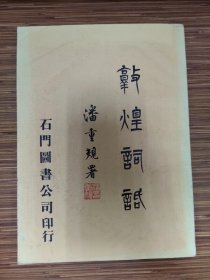 敦煌詞話
潘重規署
石門圖書公司印行